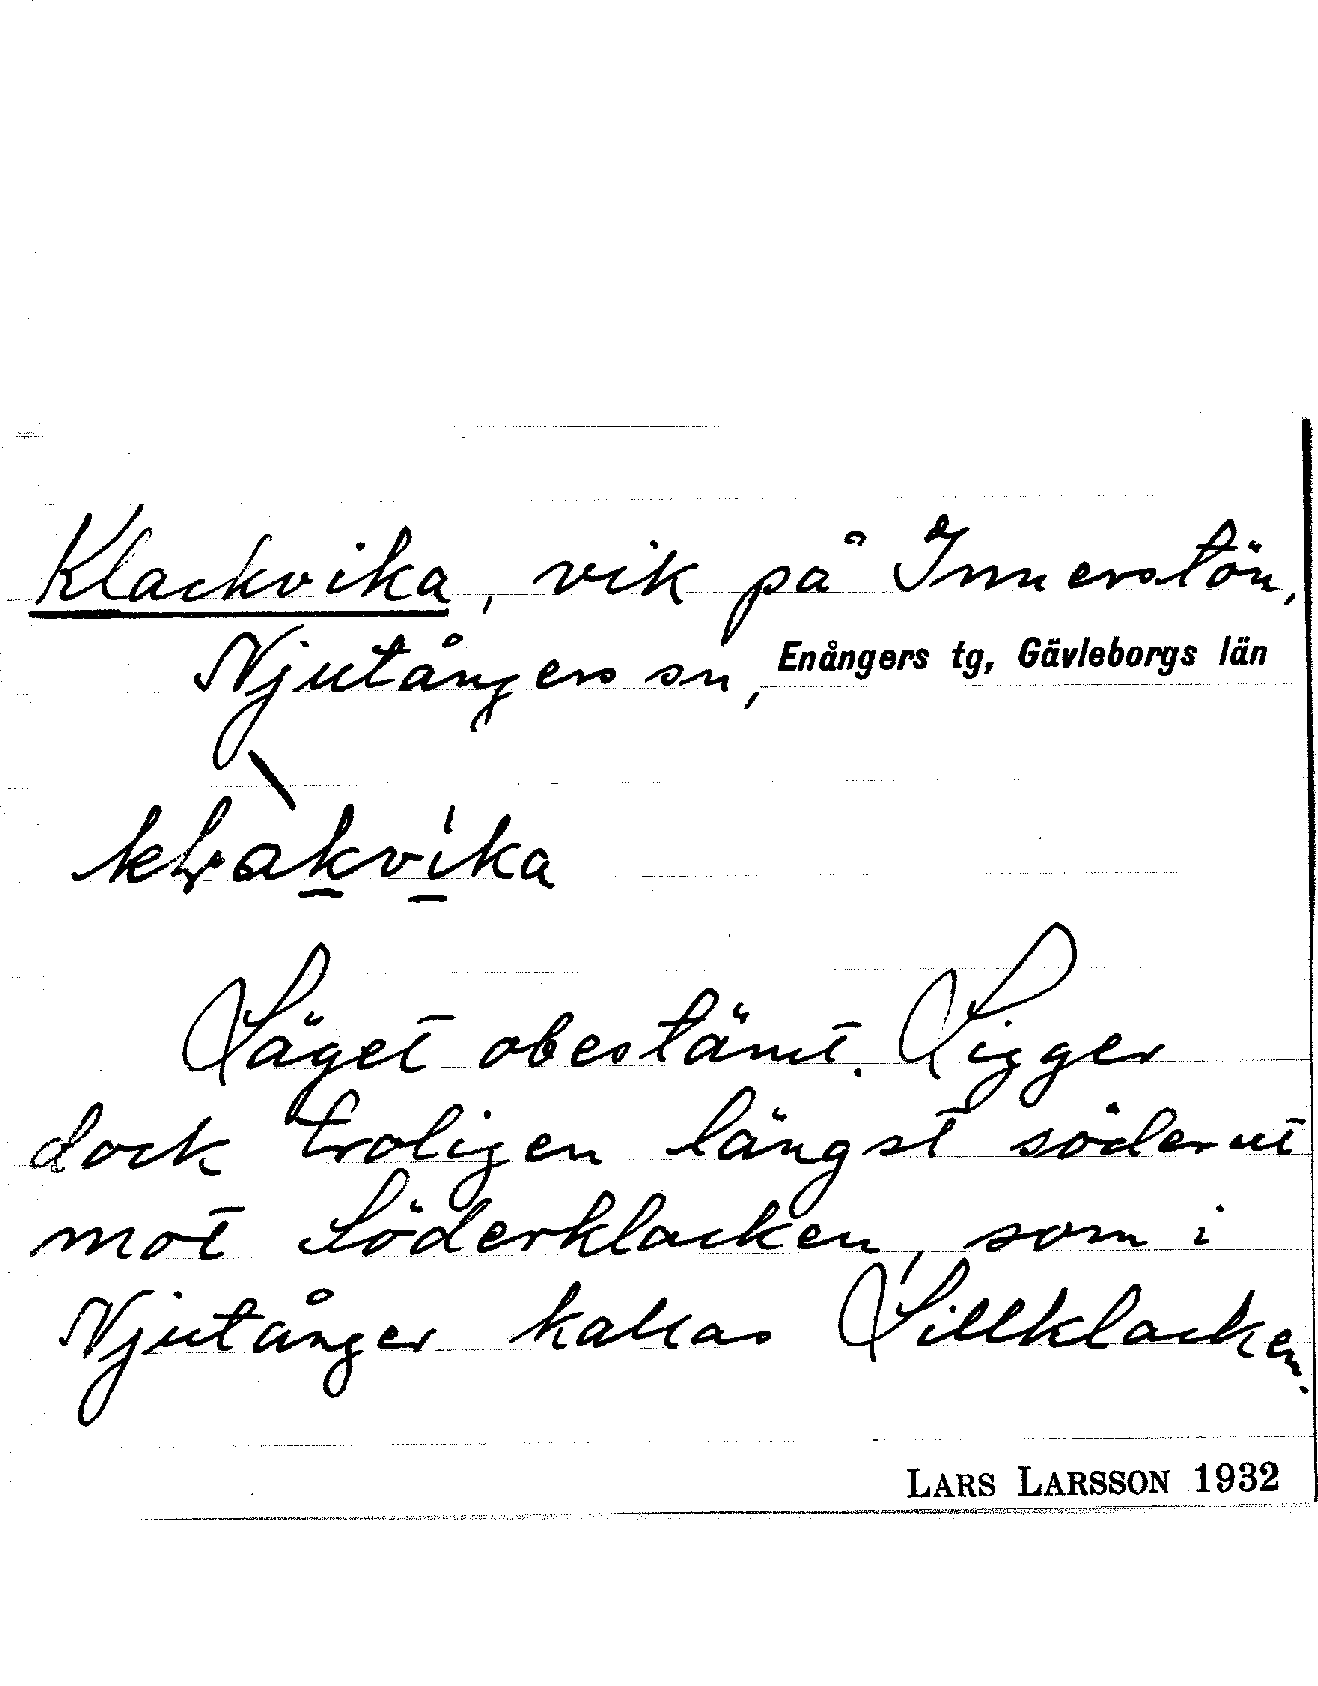 Klackvika, vik på Innerstön,
Njutångers sn, Enångers tg, Gävleborgs län
Läget obestämt. Ligger
dock troligen längst söderut
mot Söderklacken, som i
Njutånger kallas Lillklacken.
LARS LARSSON 1932